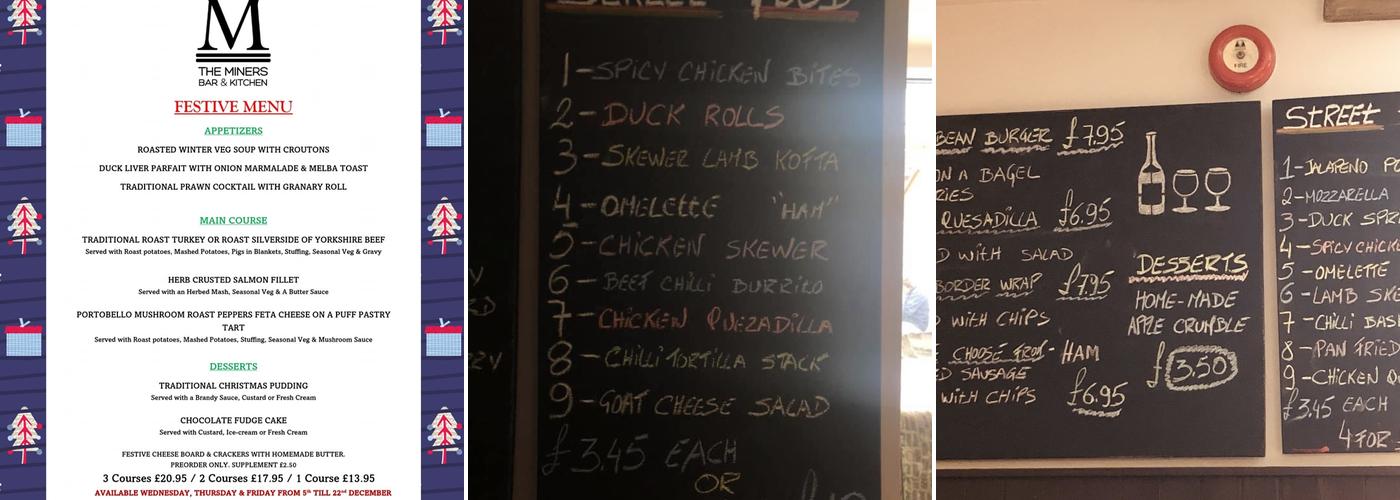 M
THE MINERS
BAR & KITCHEN
FESTIVE MENU
APPETIZERS
ROASTED WINTER VEG SOUP WITH CROUTONS
DUCK LIVER PARFAIT WITH ONION MARMALADE & MELBA TOAST
TRADITIONAL PRAWN COCKTAIL WITH GRANARY ROLL
MAIN COURSE
TRADITIONAL ROAST TURKEY OR ROAST SILVERSIDE OF YORKSHIRE BEEF
Served with Roast potatoes, Mashed Potatoes, Pigs in Blankets, Stuffing, Seasonal Veg & Gravy
HERB CRUSTED SALMON FILLET
Served with an Herbed Mash, Seasonal Veg & A Butter Sauce
PORTOBELLO MUSHROOM ROAST PEPPERS FETA CHEESE ON A PUFF PASTRY
TART
Served with Roast potatoes, Mashed Potatoes, Stuffing, Seasonal Veg & Mushroom Sauce
DESSERTS
TRADITIONAL CHRISTMAS PUDDING
Served with a Brandy Sauce, Custard or Fresh Cream
CHOCOLATE FUDGE CAKE
Served with Custard, Ice-cream or Fresh Cream
FESTIVE CHEESE BOARD & CRACKERS WITH HOMEMADE BUTTER.
PREORDER ONLY. SUPPLEMENT £2.50
3 Courses £20.95 / 2 Courses £17.95 / 1 Course £13.95
AVAILABLE WEDNESDAY, THURSDAY & FRIDAY FROM 5th TILL 22nd DECEMBER
STREET FOOD
1-SPICY CHICKEN BITES
2-DUCK ROLLS
3-SKEWER LAMB KOFTA
4-OMELETTE "HAM"
5-CHICKEN SKEWER
6-BEEF CHILLI BURRITO
7-CHICKEN QUEZADILLA
8-CHILLI TORTILLA STACK
9-GOAT CHEESE SALAD
£3.45 EACH
OR
FIRE
BEAN BURGER £7.95
ON A BAGEL
QUESADILLA £6.95
WITH SALAD
BORDER WRAP £7.95
WITH CHIPS
CHOOSE FROM- HAM
SAUSAGE
WITH CHIPS £6.95
DESSERTS
HOME-MADE
APPLE CRUMBLE
£3.50
STREET
1-JALAPENO
2-MOZZARELLA
3-DUCK
4-SPICY
5-OMELETTE
6-LAMB
7-CHILLI
8-PAN FRIED
9-CHICKEN
£3.45 EACH
4 FOR